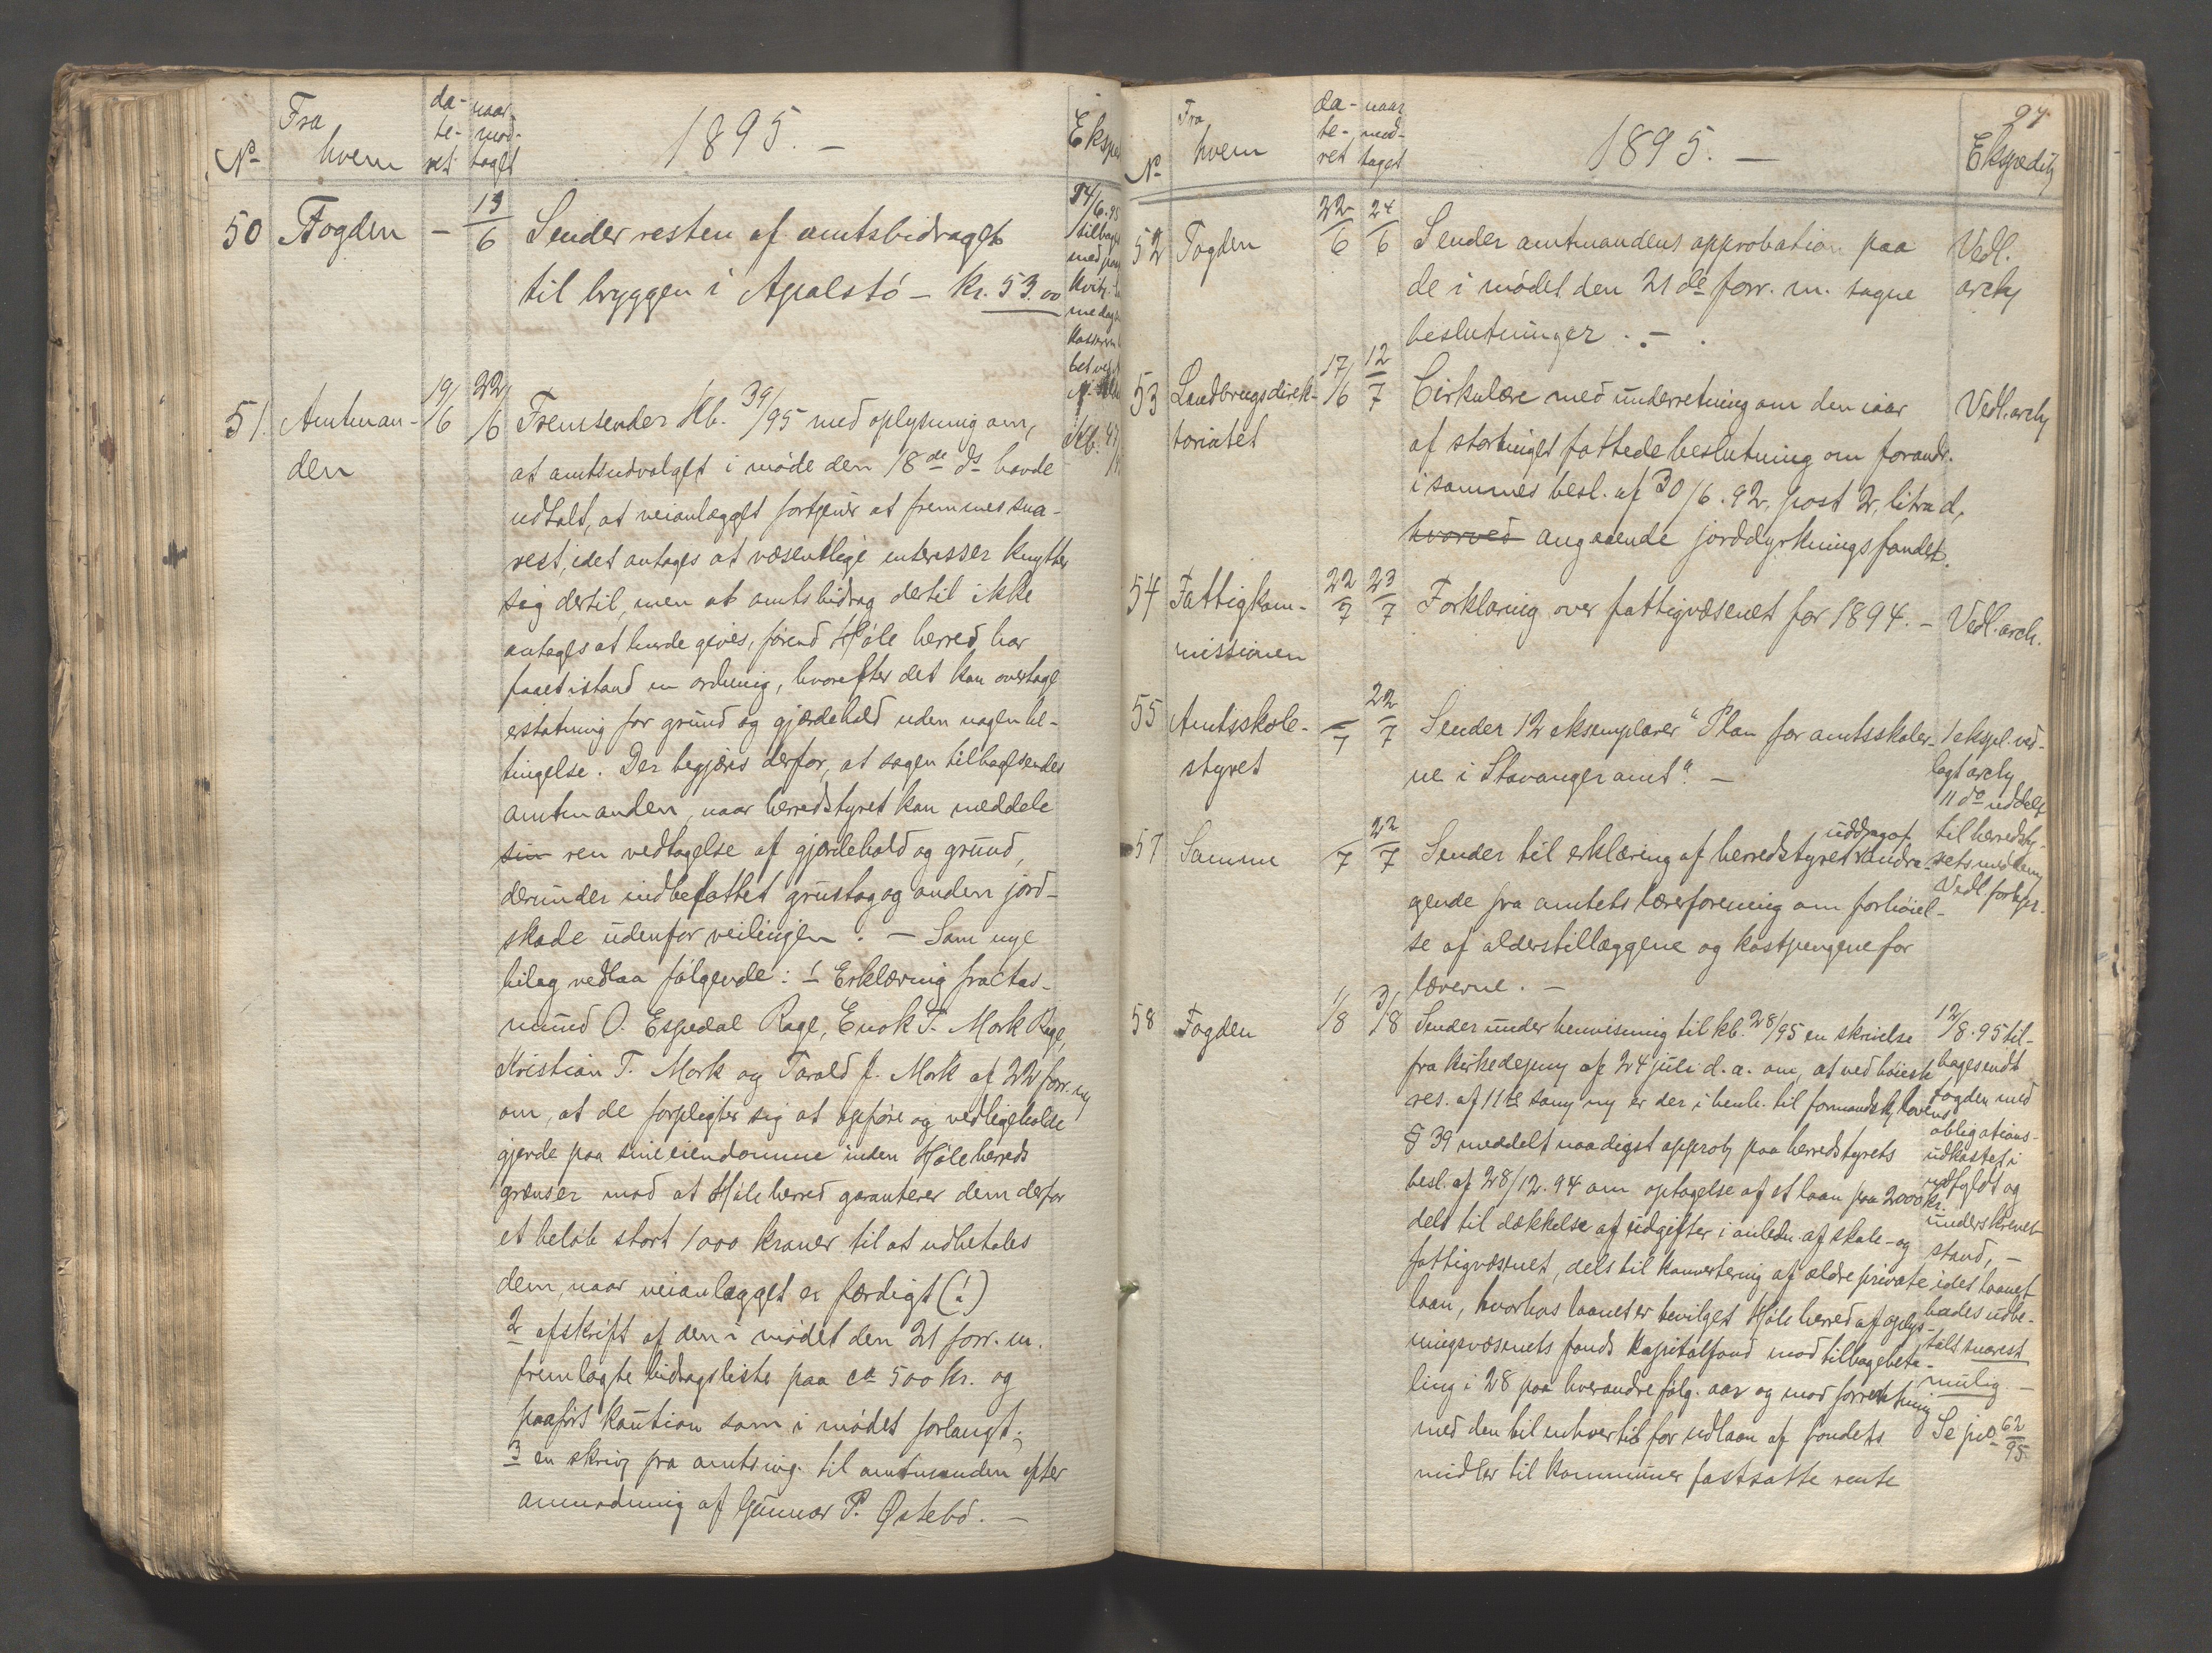 No
Fra
hvem
da-
te-
ret
naar
mod-
taget
1895. -
Ekspe
50 Fogden - 13/6 Sender resten af amtsbidraget
til bryggen i Apalstø - kr. 53.00
14/6.95
tilbage
med
kvitt.
51. Amtman-
den
19/6 22/6 Fremsender Kb. 39/95 med oplysning om,
at amtsudvalget i møde den 18de ds havde
udtalt, at veianlægget fortjener at fremmes sna-
rest, idet antages at væsentlige interesser knytter
sig dertil, men at amtsbidrag dertil ikke
antages at burde gives, førend Høle herred har
faaet istand en ordning, hvorefter det kan overtage
erstatning for grund og gjerdehold uden nogen be-
tingelse. Der begjæres derfor, at sagen tilbagesendes
amtmanden, naar herredstyret kan meddele
sin ren vedtagelse af gjerdehold og grund,
derunder indbefattet grustag og anden jord-
skade udenfor veilinjen. - Som nye
bilag vedlaa følgende: 1 Erklæring fra Aas-
mund O. Espedal Rage, Enok T. Mork Rage,
Kristian T. Mork og Tarald J. Mork af 22 forr. m
om, at de forpligter sig at opføre og vedligeholde
gjerde paa sine eiendomme inden Høle herreds
grænser mod at Høle herred garanterer dem derfor
et beløb stort 1000 kroner til at udbetales
dem, naar veianlægget er færdigt (!)
2 afskrift af den i mødet den 21 forr. m.
fremlagte bidragsliste paa ca 500 kr. og
paaført kaution som i mødet forlangt;
3 en skriv. fra amtsing. til amtmanden efter
anmodning af Gunnar P. Østebø. -
97
No
Fra
hvem
da-
te-
ret
naar
mod-
taget
1895. -
Ekspedit
52 Fogden 22/6 24/6 Sender amtmandens approbation paa
de i mødet den 21de forr. m. tagne
beslutninger. -
Vedl.
arch
53 Landbrugsdirek-
toriatet
17/6 12/7 Cirkulære med underretning om den iaar
af stortinget fattede beslutning om forandr.
i sammes besl. af 30/6.92, post 2, litra d,
hvorved angaaende jorddyrkningsfondet.
Vedl. arch
54 Fattigkom-
missionen
22/7 23/7 Forklaring over fattigvæsenet for 1894. -
Vedl. arch.
55 Amtsskole-
styret
-/7 22/7 Sender 12 eksemplarer "Plan for amtsskoler-
ne i Stavanger amt". -
1 ekspl. ved-
lagt arch
11 do uddelt
til herredsty-
rets medlem
57 Samme -/7 22/7 Sender til erklæring af herredstyret uddrag af andra-
gende fra amtets lærerforening om forhøiel-
se af alderstillæggene og kostpengene for
lærerne. -
Vedl. forhpr.
58 Fogden 1/8 3/8 Sender under henvisning til kb. 28/95 en skrivelse
fra kirkedepmg af 24 juli d. a. om, at ved høieste
res. af 11te samm er der i henh. til formandsk.lovens
§ 39 meddelt naadigst approb paa herredstyrets
besl. af 28/12.94 om optagelse af et laan paa 2000 kr.
dels til dækkelse af udgifter i anledn. af skole- og
fattigvæsenet, dels til konvertering af ældre private
laan, hvorhos laanet er bevilget Høle herred af oplys-
ningsvæsenets fonds kapitalfond mod tilbagebeta-
ling i 28 paa hverandre følg. aar og mod forrentning
med den til enhver tid for udlaan af fondets
midler til kommuner fastsatte rente
12/8.95 til-
bagesendt
Fogden med
obligations-
udkastet i
udfyldt og
underskrevet
stand, -
idet laanet
bedes udbe-
talt snarest
mulig. -
Se jno 62/95